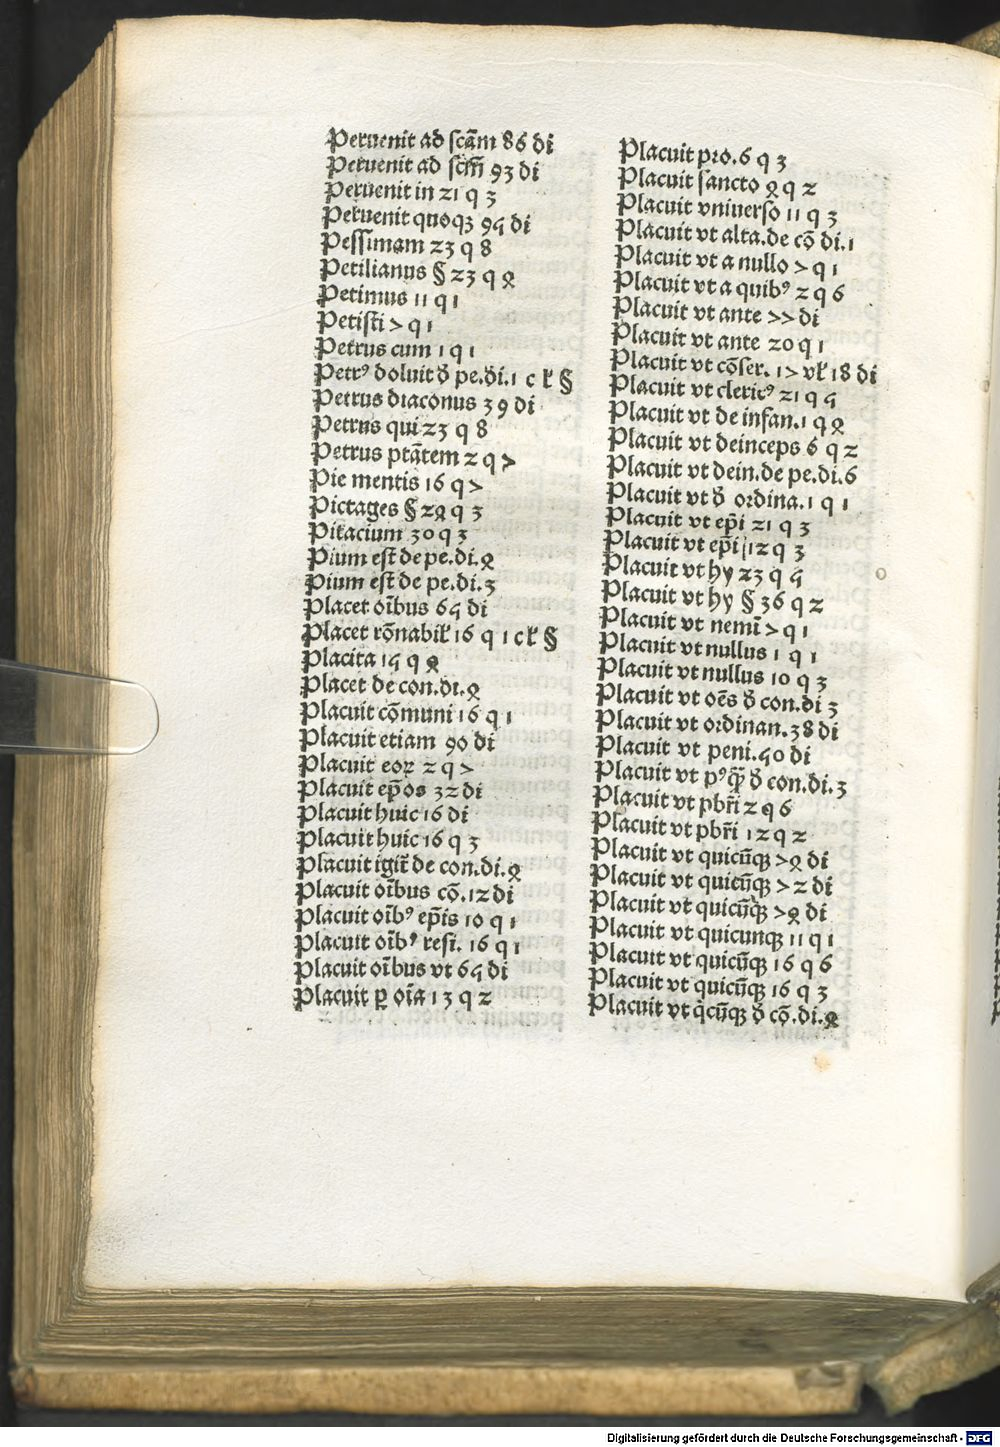 Peruenit ad scām 86 di
Peruenit ad scm̄ 93 di
Peruenit in 21 q 3
Peruenit quoqꝫ 94 di
Pessimam 23 q 8
Petilianus § 23 q 4
Petimus 11 q 1
Petisti 7 q 1
Petrus cum 1 q 1
Petrꝰ doluit ð pe.di.1 c ł §
Petrus diaconus 39 di
Petrus qui 23 q 8
Petrus ptātem 2 q 7
Pie mentis 16 q 7
Pictages § 24 q 3
Pitacium 30 q 3
Pium est̄ de pe.di.4
Pium est̄ de pe.di.3
Placet oībus 64 di
Placet rōnabił 16 q 1 c ł §
Placita 15 q 4
Placet de con.di.4
Placuit cōmuni 16 q 1
Placuit etiam 90 di
Placuit eoꝝ 2 q 7
Placuit ep̄os 32 di
Placuit huic 16 di
Placuit huic 16 q 3
Placuit igit̄ de con.di.4
Placuit oībus cō.12 di
Placuit oībꝰ ep̄is 10 q 1
Placuit oībꝰ resi. 16 q 1
Placuit oībus vt 65 di
Placuit ꝑ oīa 13 q 2
Placuit pro.6 q 3
Placuit sancto 4 q 2
Placuit vniuerso 11 q 3
Placuit vt alta.de cō di.1
Placuit vt a nullo 7 q 1
Placuit vt a quibꝰ 2 q 6
Placuit vt ante 77 di
Placuit vt ante 20 q 1
Placuit vt cōser. 17 vł 18 di
Placuit vt clericꝰ 21 q 5
Placuit vt de infan.1 q 4
Placuit vt deinceps 6 q 2
Placuit vt dein.de pe.di.6
Placuit vt ð ordina.1 q 1
Placuit vt ep̄i 21 q 3
Placuit vt ep̄i 12 q 3
Placuit vt hy 23 q 5
Placuit vt hy § 36 q 2
Placuit vt nemī 7 q 1
Placuit vt nullus 1 q 1
Placuit vt nullus 10 q 3
Placuit vt oēs ð con.di 3
Placuit vt ordinan.38 di
Placuit vt peni.50 di
Placuit vt pꝰq̄ꝫ ð con.di.3
Placuit vt pbr̄i 2 q 6
Placuit vt pbr̄i 12 q 2
Placuit vt quicūqꝫ 74 di
Placuit vt quicūqꝫ 72 di
Placuit vt quicūqꝫ 74 di
Placuit vt quicunqꝫ 11 q 1
Placuit vt quicūqꝫ 16 q 6
Placuit vt quicūqꝫ 16 q 3
Placuit vt q̇cūqꝫ ð cō.di.4
Digitalisierung gefördert durch die Deutsche Forschungsgemeinschaft - DFG